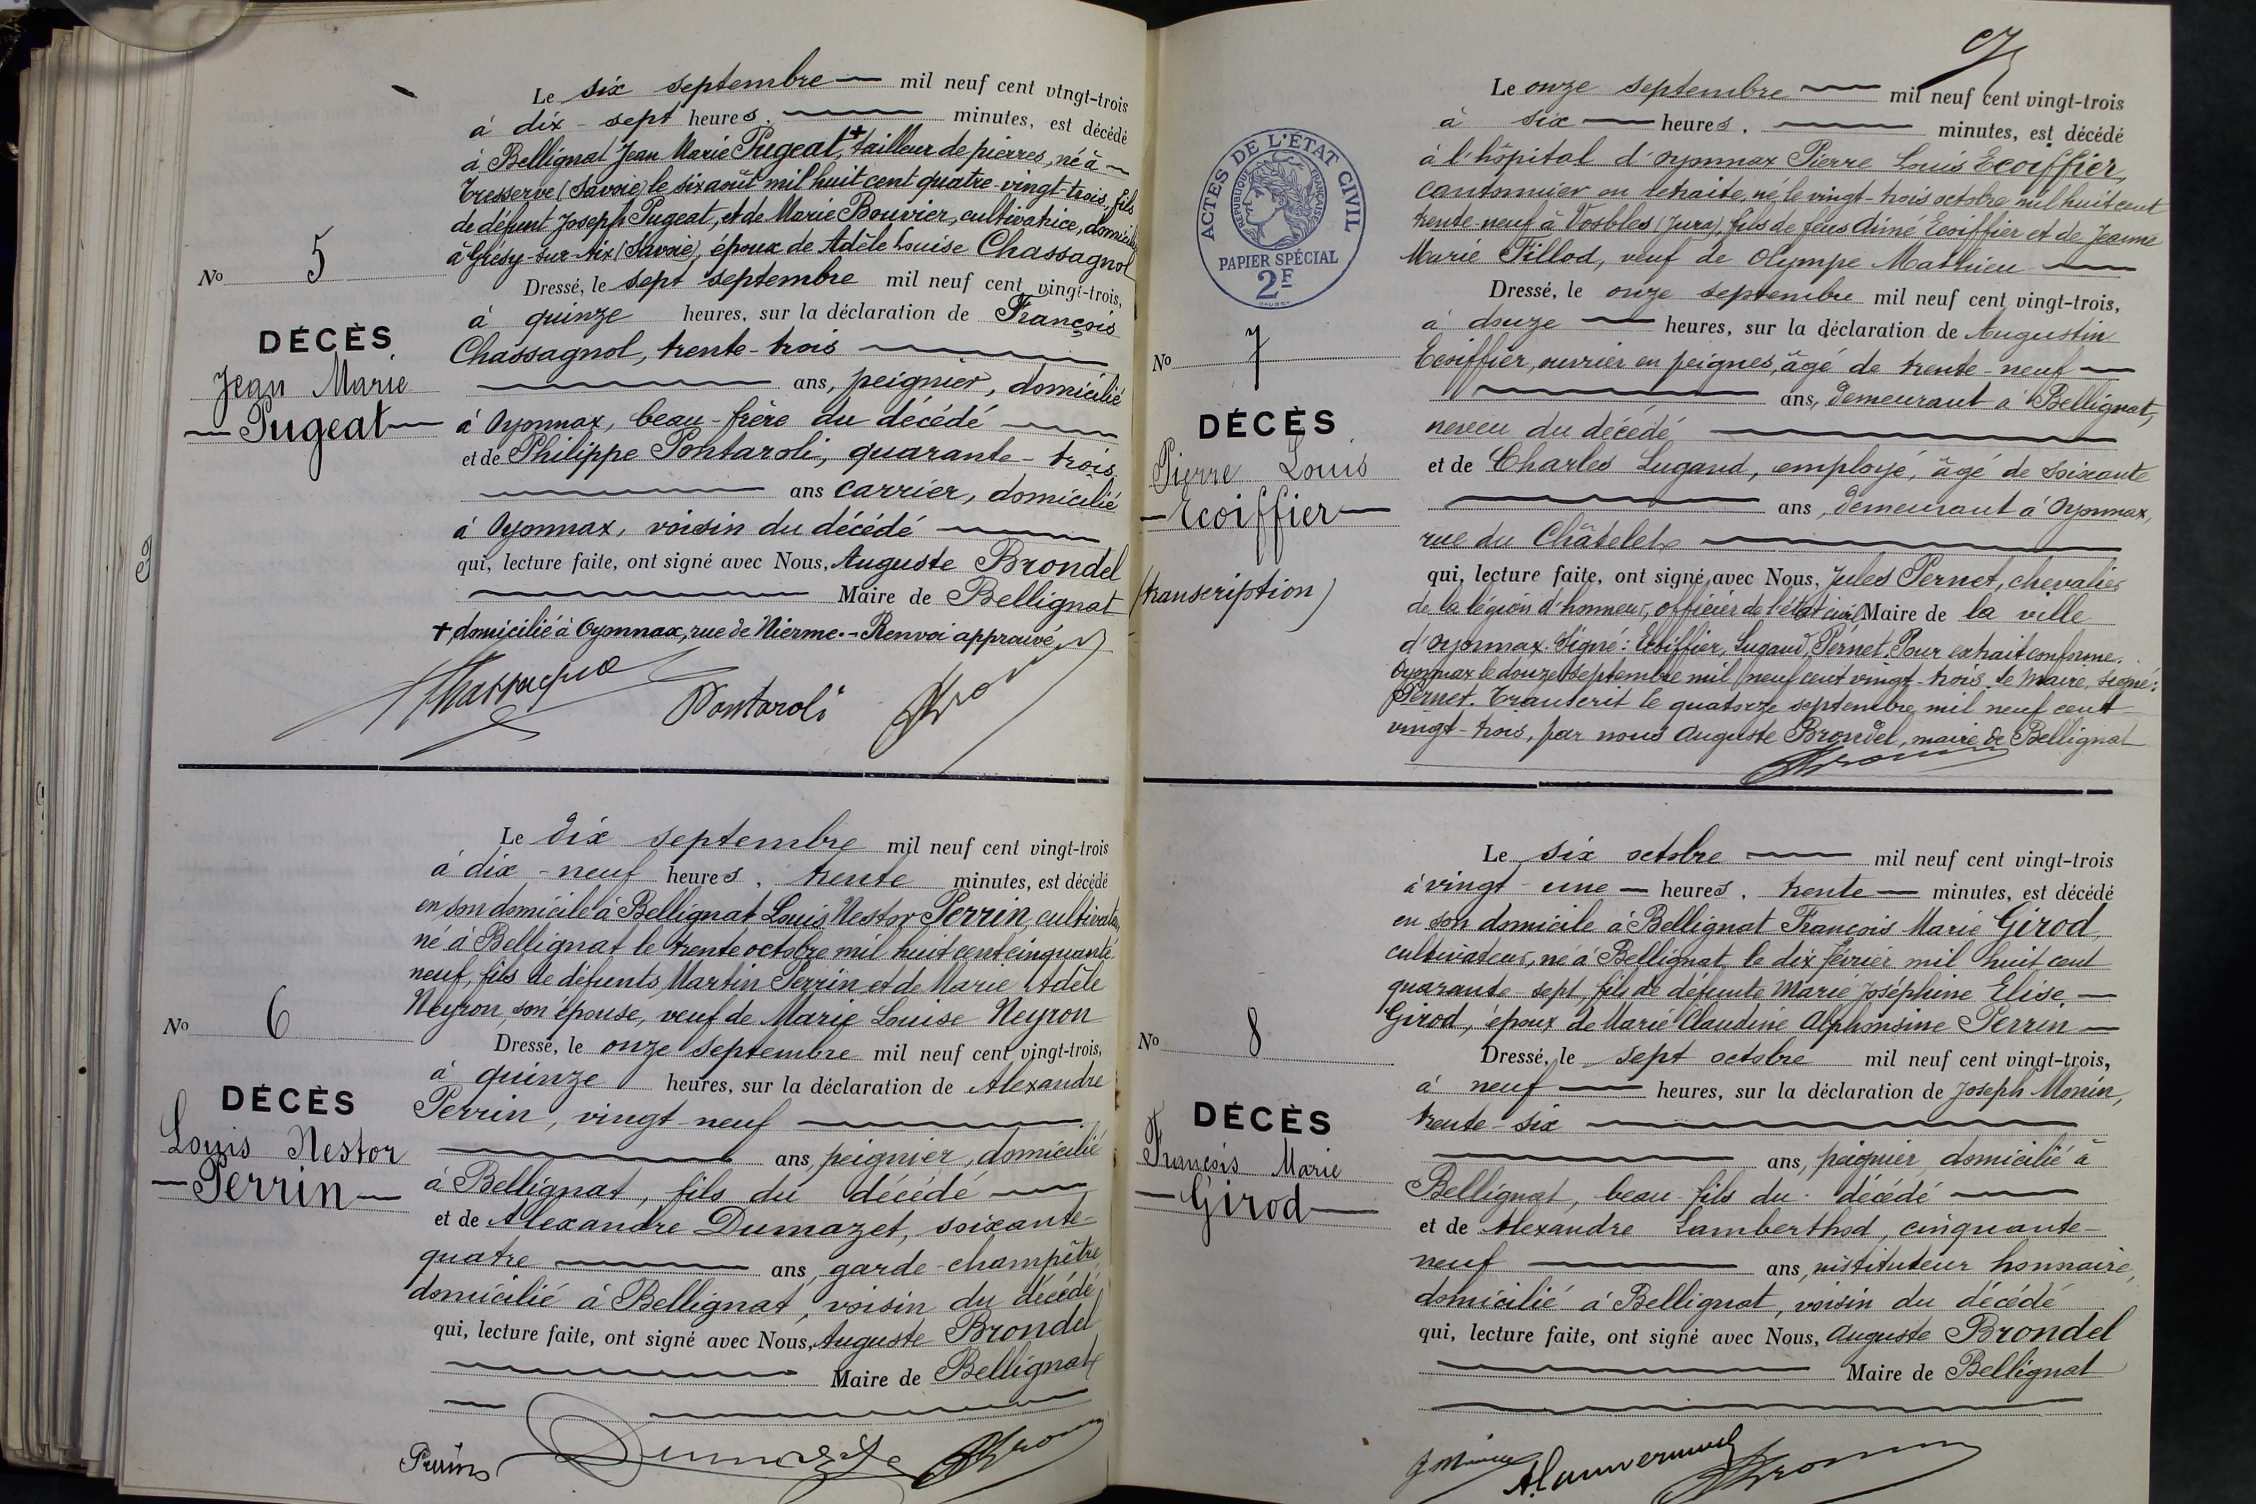 Le six septembre mil neuf cent vingt-trois
à dix-sept heures, minutes, est décédé
à Bellignat Jean Marie Pugeat,+ tailleur de pierres, né à
Tresserve (Savoie) le six août mil huit cent quatre-vingt-trois, fils
de défunt Joseph Pugeat, et de Marie Bouvier, cultivatrice, domiciliée
à Grésy-sur-Aix (Savoie), époux de Adèle Louise Chassagnol
No 5
DÉCÈS
Jean Marie
Pugeat
Dressé, le sept septembre mil neuf cent vingt-trois,
à quinze heures, sur la déclaration de François
Chassagnol, trente-trois
ans, peignier, domicilié
à Oyonnax, beau-frère du décédé
et de Philippe Pontaroli, quarante-trois
ans carrier, domicilié
à Oyonnax, voisin du décédé
qui, lecture faite, ont signé avec Nous, Auguste Brondel
Maire de Bellignat
+ domicilié à Oyonnax, rue de Nierme.- Renvoi approuvé
Pontaroli
Le dix septembre mil neuf cent vingt-trois
à dix-neuf heures, trente minutes, est décédé
en son domicile à Bellignat Louis Nestor Perrin, cultivateur,
né à Bellignat le trente octobre mil huit cent cinquante
neuf, fils de défunts Martin Perrin et de Marie Adèle
Neyron, son épouse, veuf de Marie Louise Neyron
No 6
DÉCÈS
Louis Nestor
Perrin
Dressé, le onze septembre mil neuf cent vingt-trois,
à quinze heures, sur la déclaration de Alexandre
Perrin, vingt-neuf
ans, peignier, domicilié
à Bellignat, fils du décédé
et de Alexandre Dumazet, soixante-
quatre ans, garde-champêtre,
domicilié à Bellignat, voisin du décédé
qui, lecture faite, ont signé avec Nous, Auguste Brondel
Maire de Bellignat
Perrin Dumazet
Le onze septembre mil neuf cent vingt-trois
à six heures, minutes, est décédé
à l'hôpital d'Oyonnax Pierre Louis Ecoiffier,
cantonnier en retraite, né le vingt-trois octobre mil huit cent
trente-neuf à Vosbles (Jura), fils de feus Aimé Ecoiffier et de Jeanne
Marie Pillod, veuf de Olympe Mathieu
ACTES DE L'ÉTAT CIVIL
RÉPUBLIQUE FRANÇAISE
PAPIER SPÉCIAL
2F
No 7
DÉCÈS
Pierre Louis
Ecoiffier
(transcription)
Dressé, le onze septembre mil neuf cent vingt-trois,
à douze heures, sur la déclaration de Augustin
Ecoiffier, ouvrier en peignes, âgé de trente-neuf
ans, demeurant à Bellignat,
neveu du décédé
et de Charles Lugand, employé, âgé de soixante
ans, demeurant à Oyonnax,
rue du Châtelet
qui, lecture faite, ont signé avec Nous, Jules Pernet, chevalier
de la légion d'honneur, officier de l'état civil Maire de la ville
d'Oyonnax. Signé: Ecoiffier, Lugand, Pernet. Pour extrait conforme.
Oyonnax le douze septembre mil neuf cent vingt-trois. Le Maire, signé:
Pernet. Transcrit le quatorze septembre mil neuf cent
vingt-trois, par nous Auguste Brondel, maire de Bellignat
Le six octobre mil neuf cent vingt-trois
à vingt-une heures, trente minutes, est décédé
en son domicile à Bellignat François Marie Girod,
cultivateur, né à Bellignat le dix février mil huit cent
quarante-sept, fils de défunte Marie Joséphine Elise
Girod, époux de Marie Claudine Alphonsine Perrin
No 8
DÉCÈS
François Marie
Girod
Dressé, le sept octobre mil neuf cent vingt-trois,
à neuf heures, sur la déclaration de Joseph Monin,
trente-six
ans, peignier domicilié à
Bellignat, beau-fils du décédé
et de Alexandre Lamberthod, cinquante-
neuf ans, instituteur honnaire,
domicilié à Bellignat, voisin du décédé
qui, lecture faite, ont signé avec Nous, Auguste Brondel
Maire de Bellignat